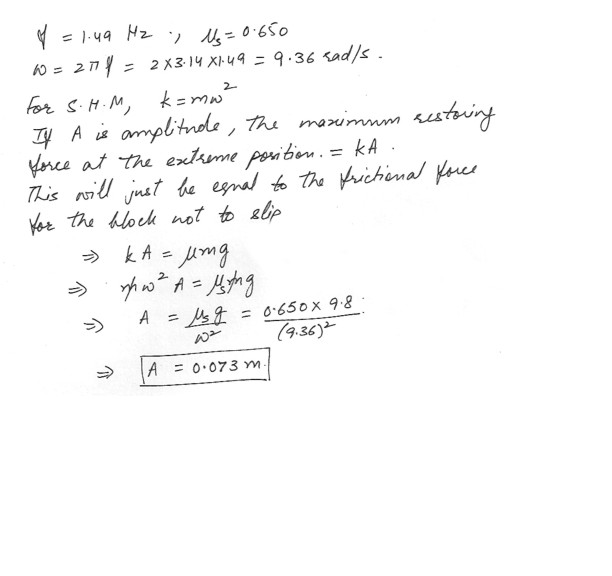 f = 1.49 Hz ; μs = 0.650
ω = 2πf = 2×3.14×1.49 = 9.36 rad/s.
For S.H.M, k = mω²
If A is amplitude, the maximum restoring
force at the extreme position. = kA.
This will just be equal to the frictional force
for the block not to slip
⇒ kA = μmg
⇒ mω²A = μsmg
⇒ A = μsg/ω² = 0.650×9.8/(9.36)²
⇒ A = 0.073 m.